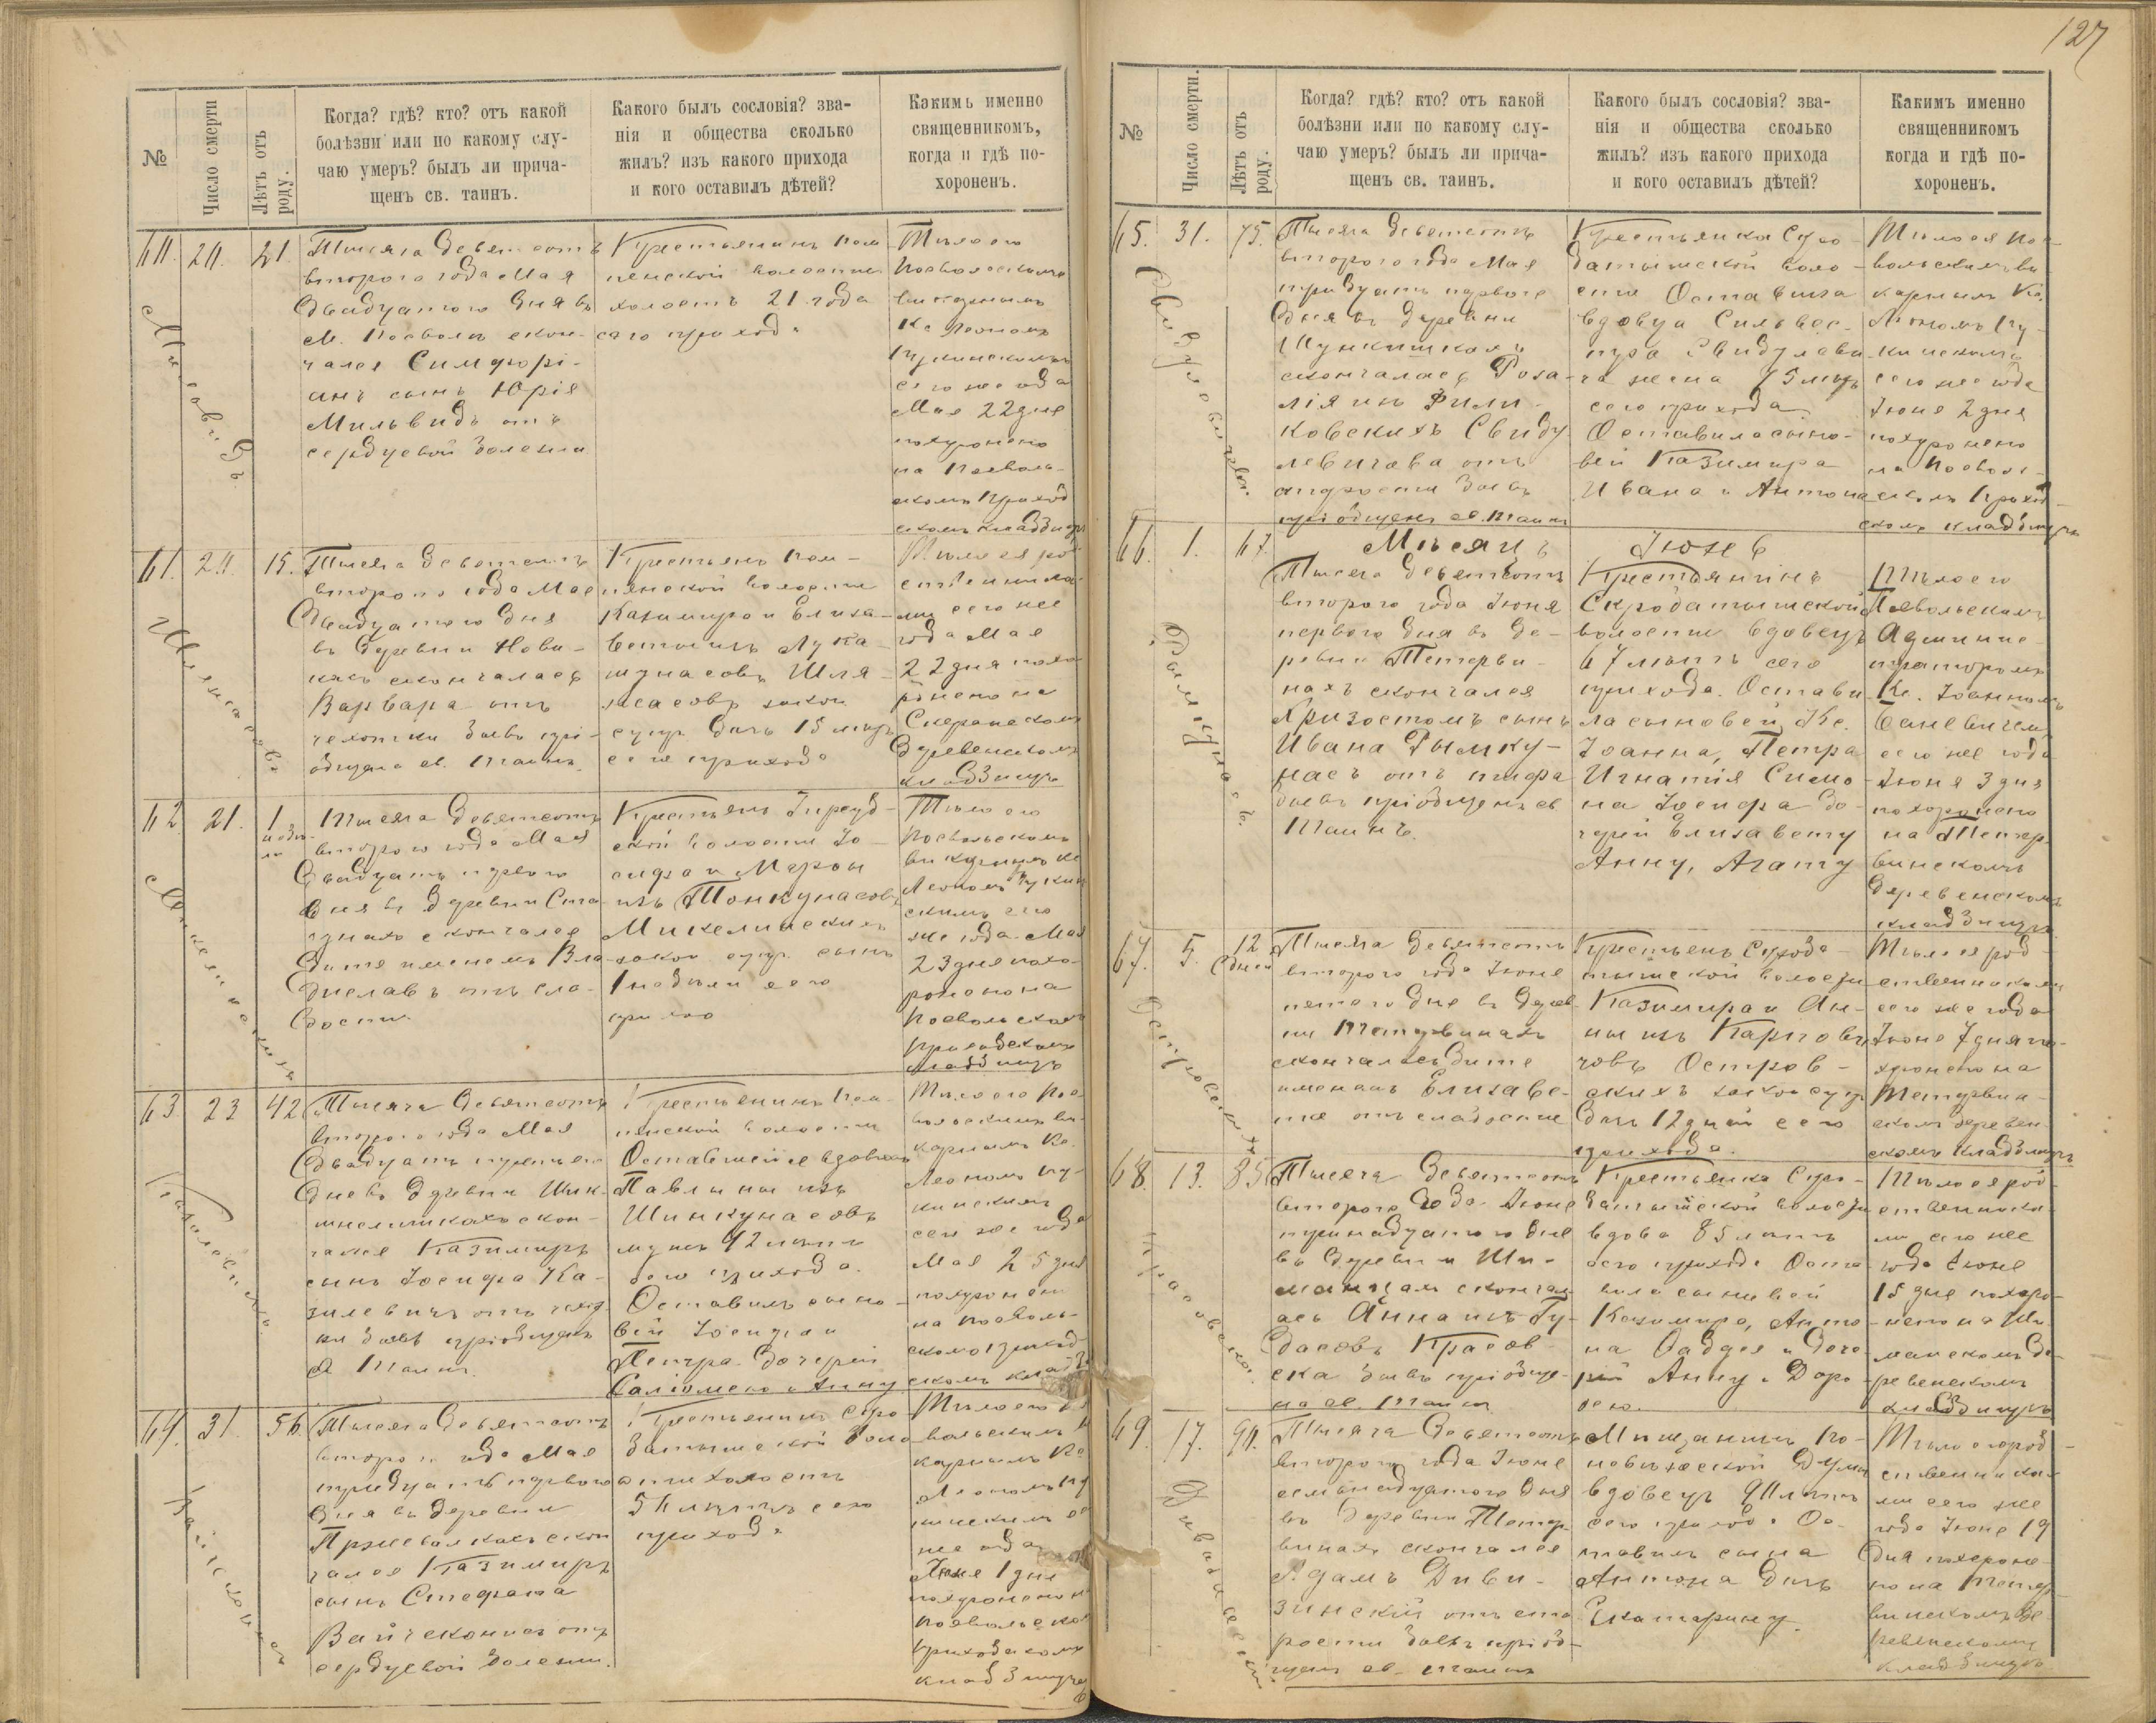 127
№
Число смерти
Лѣтъ отъ роду.
Когда? гдѣ? кто? отъ какой
болѣзни или по какому слу-
чаю умеръ? былъ ли прича-
щенъ св. таинъ.
Какого былъ сословія? зва-
нія и общества сколько
жилъ? изъ какого прихода
и кого оставилъ дѣтей?
Какимъ именно
священникомъ,
когда и гдѣ по-
хороненъ.
21.
Тысяча девятсотъ
второго года Мая
двадцатого дня въ
м. Посволь скон-
чался Симфорі-
анъ сынъ Юрія
Мильвидъ отъ
сердцевой болезни
Крестьянинъ Пом
пенской волости
холостъ 21 года
сего прихода
Тѣло его
Посвольскимъ
викарнымъ
Кс Леономъ
сего же года
Мая 22 дня
похоронено
на Посволь-
скомъ приход
скомъ кладбищѣ
61.
15.
Тысяча девятсотъ
второго года Мая
двадцатого дня
въ деревни Нови-
кахъ скончалась
Варвара отъ
чехотки бывъ прі-
общена св. Таинъ
Крестьянъ Пом-
пянской волости
Казимира и Елиза-
веты изъ Лука-
шунасовъ Шля-
жасовъ закон
супр. дочь 15 лѣтъ
сего прихода
Тѣло ея род
ственника-
ми сего же
года Мая
22 дня похо
ронено на
деревенскомъ
кладбищѣ
62
21.
1
недѣ-
ли
Тысяча девятсотъ
второго года Мая
двадцать первого
дня въ деревни Ста
чунахъ скончался
дитя именемъ Вла-
диславъ отъ сла-
бости.
Крестьянъ
ской волости Іо-
сифа и Марты
изъ Тонкунасовъ
Микелинскихъ
закон супр. сынъ
1 недѣли сего
прихо
Тѣло его
Посвольскимъ
викарнымъ Кс
Леономъ Пукин
скимъ сего
же года Мая
23 дня похо-
ронено на
Посвольскомъ
приходскомъ
кладбищѣ
63
23
42
Тысяча девятсотъ
второго года Мая
двадцать третьего
дня въ деревни Шик-
шнелишкахъ скон-
чался Казимиръ
сынъ Іосифа Ка-
зилевичъ отъ чехот
ки бывъ пріобщенъ
св Таинъ.
Крестьянинъ Пом-
пенской волости
Оставшейся вдовы
Павлины изъ
Шинкунасовъ
мужъ 42 лѣтъ
сего прихода.
Оставилъ сыно-
вей Іосифа и
Петра дочерей
Саломею и Анну
Тѣло его Пос-
вольскимъ ви-
карнымъ Кс.
Леономъ Пу-
кинскимъ
сего же года
Мая 25 дня
похоронено
на Посволь-
скомъ приход-
скомъ кладб
31.
56
Тысяча девятсотъ
второго года Мая
тридцать первого
дня въ деревни
Пржевалкахъ скон
чался Казимиръ
сынъ Стефана
Вайчеконисъ отъ
сердцевой болезни.
Крестьянинъ Скро-
датышской воло
сти холостъ
56 лѣтъ сего
прихода
Тѣло его
вольскимъ
карнымъ Кс
Леономъ Пу
кинскимъ се
же года
Іюня 1 дня
похоронено н
Посвольско
приходскомъ
кладбищѣ
№
Число смерти.
Лѣтъ отъ роду.
Когда? гдѣ? кто? отъ какой
болѣзни или по какому слу-
чаю умеръ? былъ ли прича-
щенъ св. таинъ.
Какого былъ сословія? зва-
нія и общества сколько
жилъ? изъ какого прихода
и кого оставилъ дѣтей?
Какимъ именно
священникомъ
когда и гдѣ по-
хороненъ.
65.
31.
75.
Тысяча девятсотъ
второго года Мая
тридцать первого
дня въ деревни
скончалась Роза-
лія изъ Фили-
ковскихъ Свиду
левичова отъ
старости бывъ
пріобщенъ св. Таинъ
Крестьянка Скро-
датышской воло-
сти Оставшая
вдовца Сильвес-
тра Свидулеви
ча жена 75 лѣтъ
сего прихода
Оставила сыно-
вей Казимира
Ивана и Антона
Тѣло ея Пос-
вольскимъ ви
карнымъ Кс.
Леономъ Пу-
кинскимъ
сего же года
Іюня 2 дня
похоронено
на Посволь-
скомъ приход
скомъ кладбищѣ
66.
1.
67
Мѣсяцъ Іюнь
Тысяча девятсотъ
второго года Іюня
первого дня въ де-
ревни Тетерви-
нахъ скончался
Хризостомъ сынъ
Ивана Рымку-
насъ отъ тифа
бывъ пріобщенъ св
Таинъ.
Крестьянинъ
Скродатышской
волости вдовецъ
67 лѣтъ сего
прихода. Остави
ла сыновей Кс.
Іоанна, Петра
Игнатія Симо
на Іосифа до-
черей Елизавету
Анну, Агату
Тѣло его
Посвольскимъ
Админис-
траторомъ
Кс. Іоанномъ
сего же года
Іюня 3 дня
похоронено
на Тетер-
винскомъ
деревенскомъ
кладбищѣ
67.
5.
12
дней
Тысяча девятсотъ
второго года Іюня
пятого дня въ дерев-
ни Тетервинахъ
скончалась дитя
именемъ Елизаве-
та отъ слабости
Крестьянъ Скрода-
тышской волости
Казимира и Ан-
ны изъ Карпове
човъ Остров-
скихъ закон супр
дочь 12 дней сего
прихода.
Тѣло ея род-
ственниками
сего же года
Іюня 7 дня по-
хоронено на
Тетервин-
скомъ деревен-
скомъ кладбищѣ
68.
13.
85
Тысяча девятсотъ
второго года Іюня
тринадцатого дня
въ деревни Ши-
манцахъ сконча-
лась Анна изъ Гу-
дасовъ Красов-
ска бывъ пріобще-
на св. Таинъ
Крестьянка Скро-
датышской волости
вдова 85 лѣтъ
сего прихода Оста
вила сыновей
Казимира, Анто
на Фаддея и доче
рей Анну и Доро-
тею.
Тѣло ея род-
ственника-
ми сего же
года Іюня
15 дня похоро-
нено на Ши-
манскомъ де-
ревенскомъ
кладбищѣ
69.
17.
Тысяча девятсотъ
второго года Іюня
семьнадцатого дня
въ деревни Тетер-
винахъ скончался
Адамъ Диви-
зинскій отъ ста-
рости бывъ пріоб-
щенъ св. Таинъ
Мищанинъ По-
невежской Думы
вдовецъ
сего прихода Ос-
тавилъ сына
Антона дочь
Екатарину.
Тѣло его род-
ственника-
ми сего же
года Іюня 19
дня похороне-
но на Тетер-
винскомъ де-
ревенскомъ
кладбищѣ